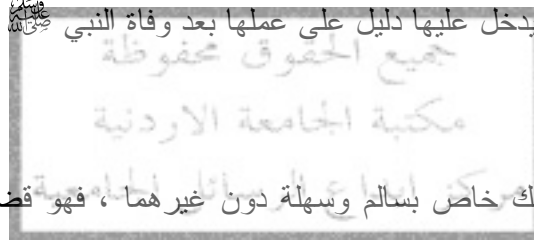 يدخل عليها دليل على عملها بعد وفاة النبي ﷺ
جميع الحقوق محفوظة
مكتبة الجامعة الاردنية
مركز ايداع الرسائل الجامعية
لك خاص بسالم وسهلة دون غيرهما ، فهو قض